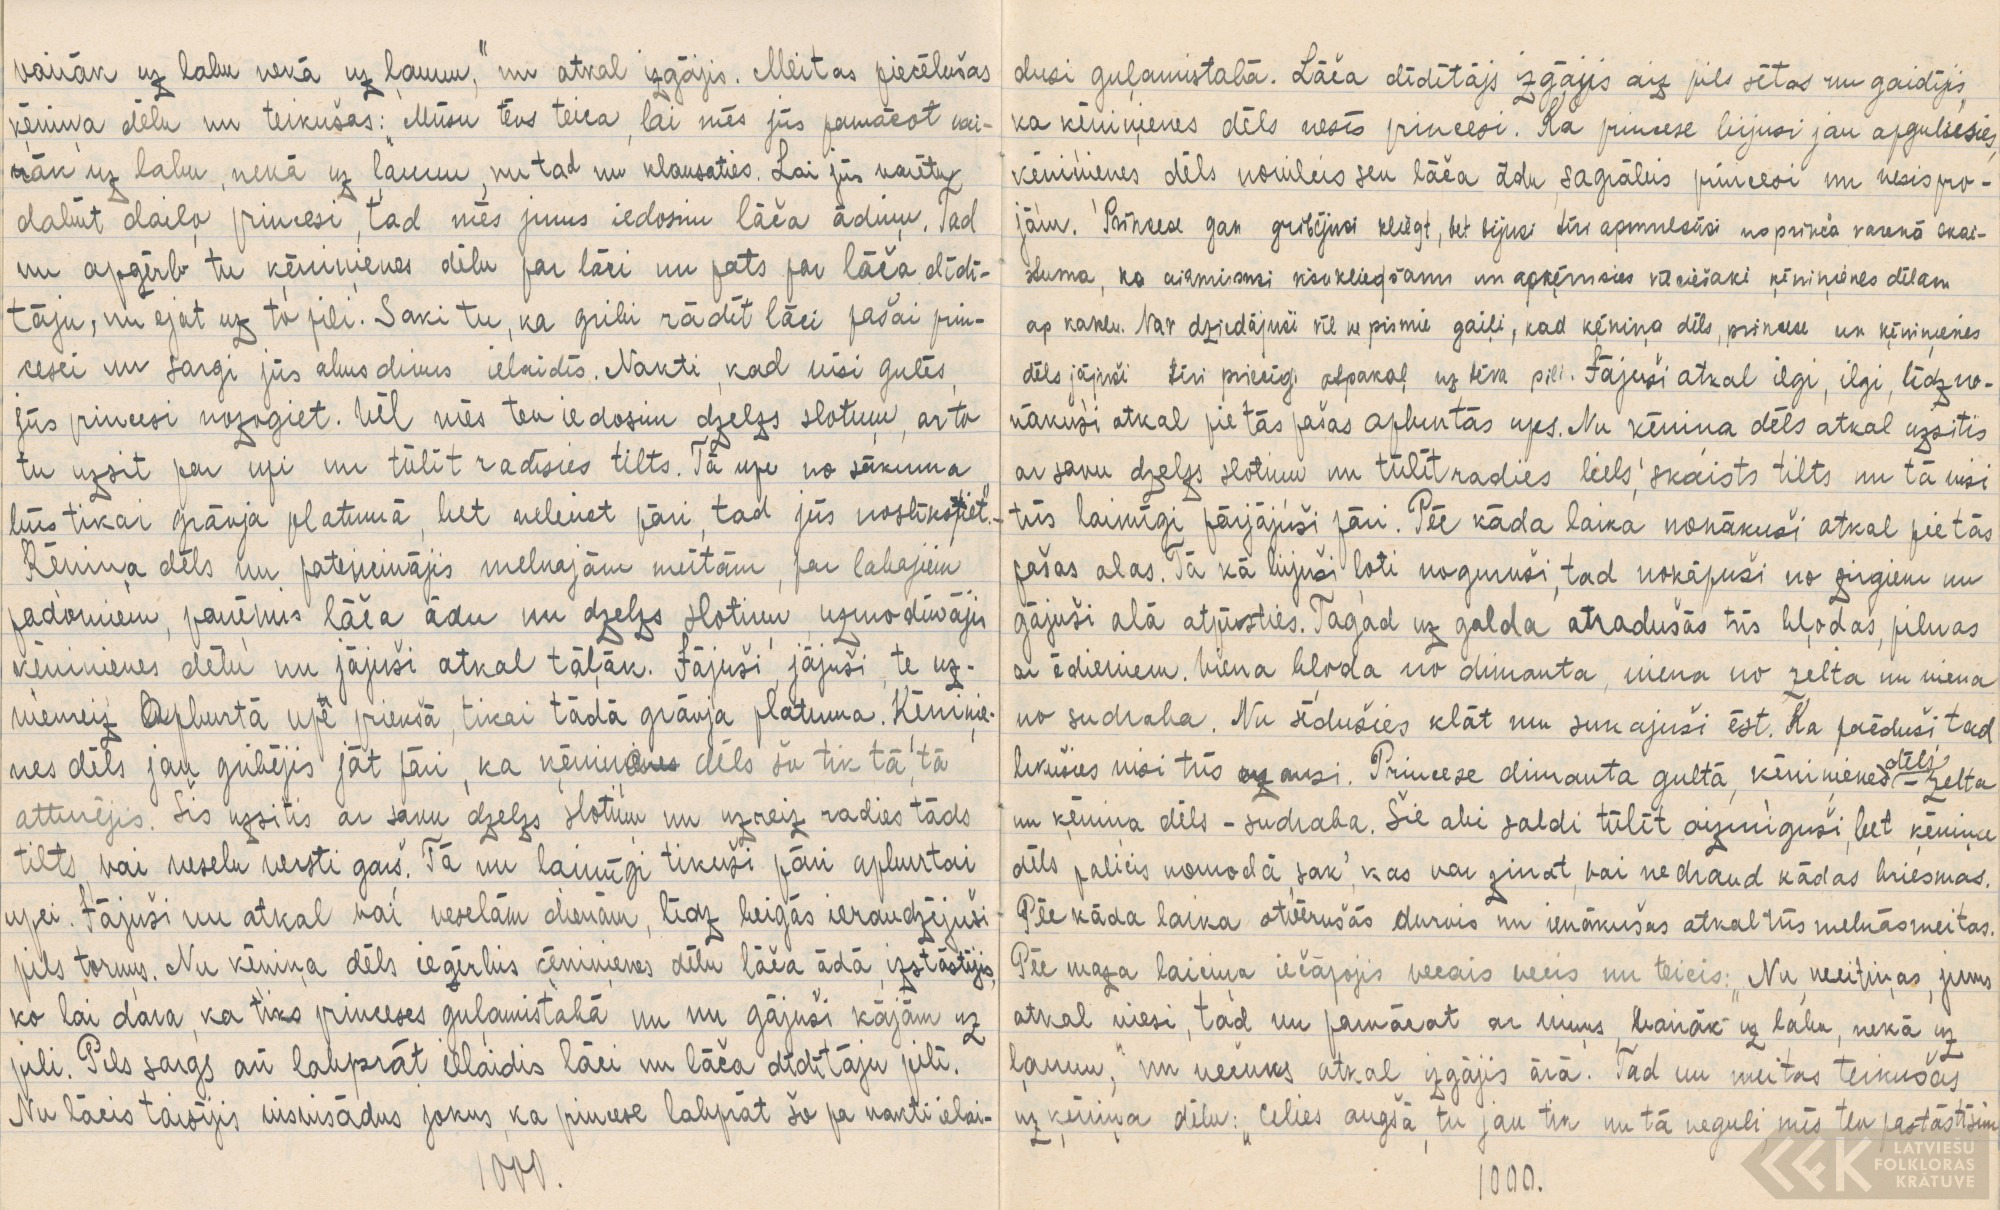 vairāk uz labu nekā uz ļaunu," un atkal izgājis. Meitas piecēlušas
ķēniņa dēlu un teikušas: "Mūsu tēvs teica, lai mēs jūs pamācot vai-
rāk uz labu, nekā uz ļaunu, nu tad nu klausaties. Lai jūs varētu
dabūt daiļo princesi, tad mēs jums iedosim lāča ādiņu. Tad
nu apģērb tu ķēniņienes dēlu par lāci un pats par lāča dīdī-
tāju, un ejat uz to pili. Saki tu, ka gribi rādīt lāci pašai prin-
cesei un sargi jūs abus divus ielaidīs. Naktī, kad visi gulēs,
jūs princesi nozogiet. Vēl mēs tev iedosim dzelzs slotiņu, ar to
tu uzsit par upi un tūlīt radīsies tilts. Tā upe no sākuma
būs tikai grāvja platumā, bet neleciet pāri, tad jūs noslīkstiet."-
Ķēniņa dēls nu pateicinājis melnajām meitām, par labajiem
padomiem, paņēmis lāča ādu un dzelzs slotiņu uzmodinājis
ķēniņienes dēlu un jājuši atkal tālāk. Jājuši, jājuši, te uz-
niemeiz Apburtā upē priekšā, tikai tādā grāvja platuma. Ķēniņie-
nes dēls jau gribējis jāt pāri, ka ķēniņienes dēls šo tik tā, tā
atturējis. Šis uzsitis ar savu dzelzs slotiņu un uzreiz radies tāds
tilts, vai veselu versti garš. Tā nu laimīgi tikuši pāri apburtai
upei. Jājuši nu atkal vai veselām dienām, līdz beigās ieraudzējuši
pils torņus. Nu ķēniņa dēls ieģērbis ķēniņienes dēlu lāča ādā, izstāstījis,
ko lai dara, ka tiks princeses guļamistabā un nu gājuši kājām uz
pili. Pils sargs arī labprāt ielaidis lāci un lāča dīdītāju pilī.
Nu lācis taisījis visvisādus jokus, ka princese labprāt šo pa nakti ielai-
1000.
dusi guļamistabā. Lāča dīdītājs izgājis aiz pils sētas un gaidījis,
ka ķēniņienes dēls nesīs princesi. Ka princese bijusi jau apgulusies,
ķēniņienes dēls novilcis sev lāča ādu, sagrābis princesi un nesis pro-
jām. Princese gan gribējusi kliegt, bet bijusi tīri apmulsusi no prinča varenā skai-
stuma, ka aizmirsusi visu kliegšanu un apķērusies vēl ciešāki ķēniņienes dēlam
ap kaklu. Nav dziedājuši vēl ne pirmie gaiļi, kad ķēniņa dēls, princese un ķēniņienes
dēls jājuši tīri priecīgi atpakaļ uz tēva pili. Jājuši atkal ilgi, ilgi, līdz no-
nākuši atkal pie tās pašas apburtās upes. Nu ķēniņa dēls atkal uzsitis
ar savu dzelzs slotiņu un tūlīt radies liels, skaists tilts un tā visi
trīs laimīgi pārjājuši pāri. Pēc kāda laika nonākuši atkal pie tās
pašas alas. Tā kā bijuši ļoti noguruši, tad nokāpuši no zirgiem un
gājuši alā atpūsties. Tagad uz galda atradušās trīs bļodas, pilnas
ar ēdieniem. Viena bļoda no dimanta, viena no zelta un viena
no sudraba. Nu sēdušies klāt un sukajuši ēst. Ka paēduši tad
likušies visi trīs uz ausi. Princese dimanta gultā, ķēniņienes dēls - zelta
un ķēniņa dēls - sudraba. Šie abi saldi tūlīt aizmiguši, bet ķēniņa
dēls palicis nomodā, sak', kas var zināt, vai nedraud kādas briesmas.
Pēc kāda laika atvērušās durvis un ienākušas atkal trīs melnās meitas.
Pēc maza laiciņa iečāpojis vecais vecis un teicis: "Nu, meitiņas, jums
atkal viesi, tad nu pamācat ar viņus, vairāk uz labu, nekā uz
ļaunu," un večuks atkal izgājis ārā. Tad nu meitas teikušas
uz ķēniņa dēlu: "Celies augšā, tu jau tik un tā neguli mēs tev pastāstīsim
1000.
LATVIEŠU
FOLKLORAS
KRĀTUVE